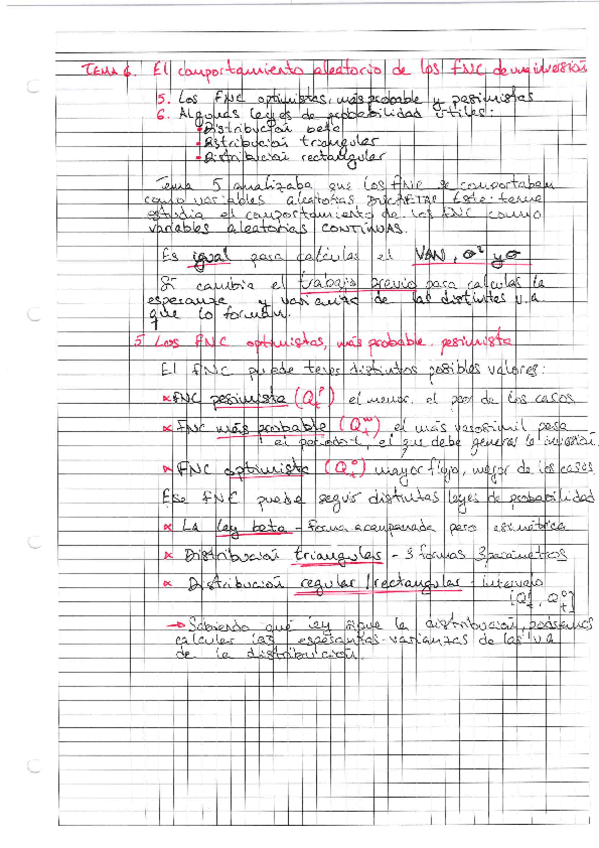 TEMA 6. El comportamiento aleatorio de los FNC de una inversión
5. Los FNC optimistas, más probable y pesimistas
6. Algunas leyes de probabilidad útiles:
• Distribución beta
• Distribución triangular
• Distribución rectangular
Tema 5 analizaba que los FNC se comportaban
como variables aleatorias DISCRETAS Este tema
estudia el comportamiento de los FNC como
variables aleatorias CONTINUAS.
Es igual para calcular el VAN, σ² y σ
Sí cambia el trabajo previo para calcular la
esperanza y varianza de las distintas v.a
que lo forman.
5 Los FNC optimistas, más probable. pesimista
El FNC puede tener distintos posibles valores:
* FNC pesimista (Qₜᵖ) el menor. el peor de los casos
* FNC más probable (Qₜᵐ) el más verosímil para
el periodo t, el que debe generar la inversión.
* FNC optimista (Qₜᵒ) mayor flujo, mejor de los casos
Ese FNC puede seguir distintas leyes de probabilidad
* La ley beta - forma acampanada pero asimétrica
* Distribución triangular - 3 formas 3 parámetros
* Distribución regular / rectangular - Intervalo
[Qₜᵖ, Qₜᵒ]
→ Sabiendo qué ley sigue la distribución, podremos
calcular las esperanzas-varianzas de las v.a
de la distribución.